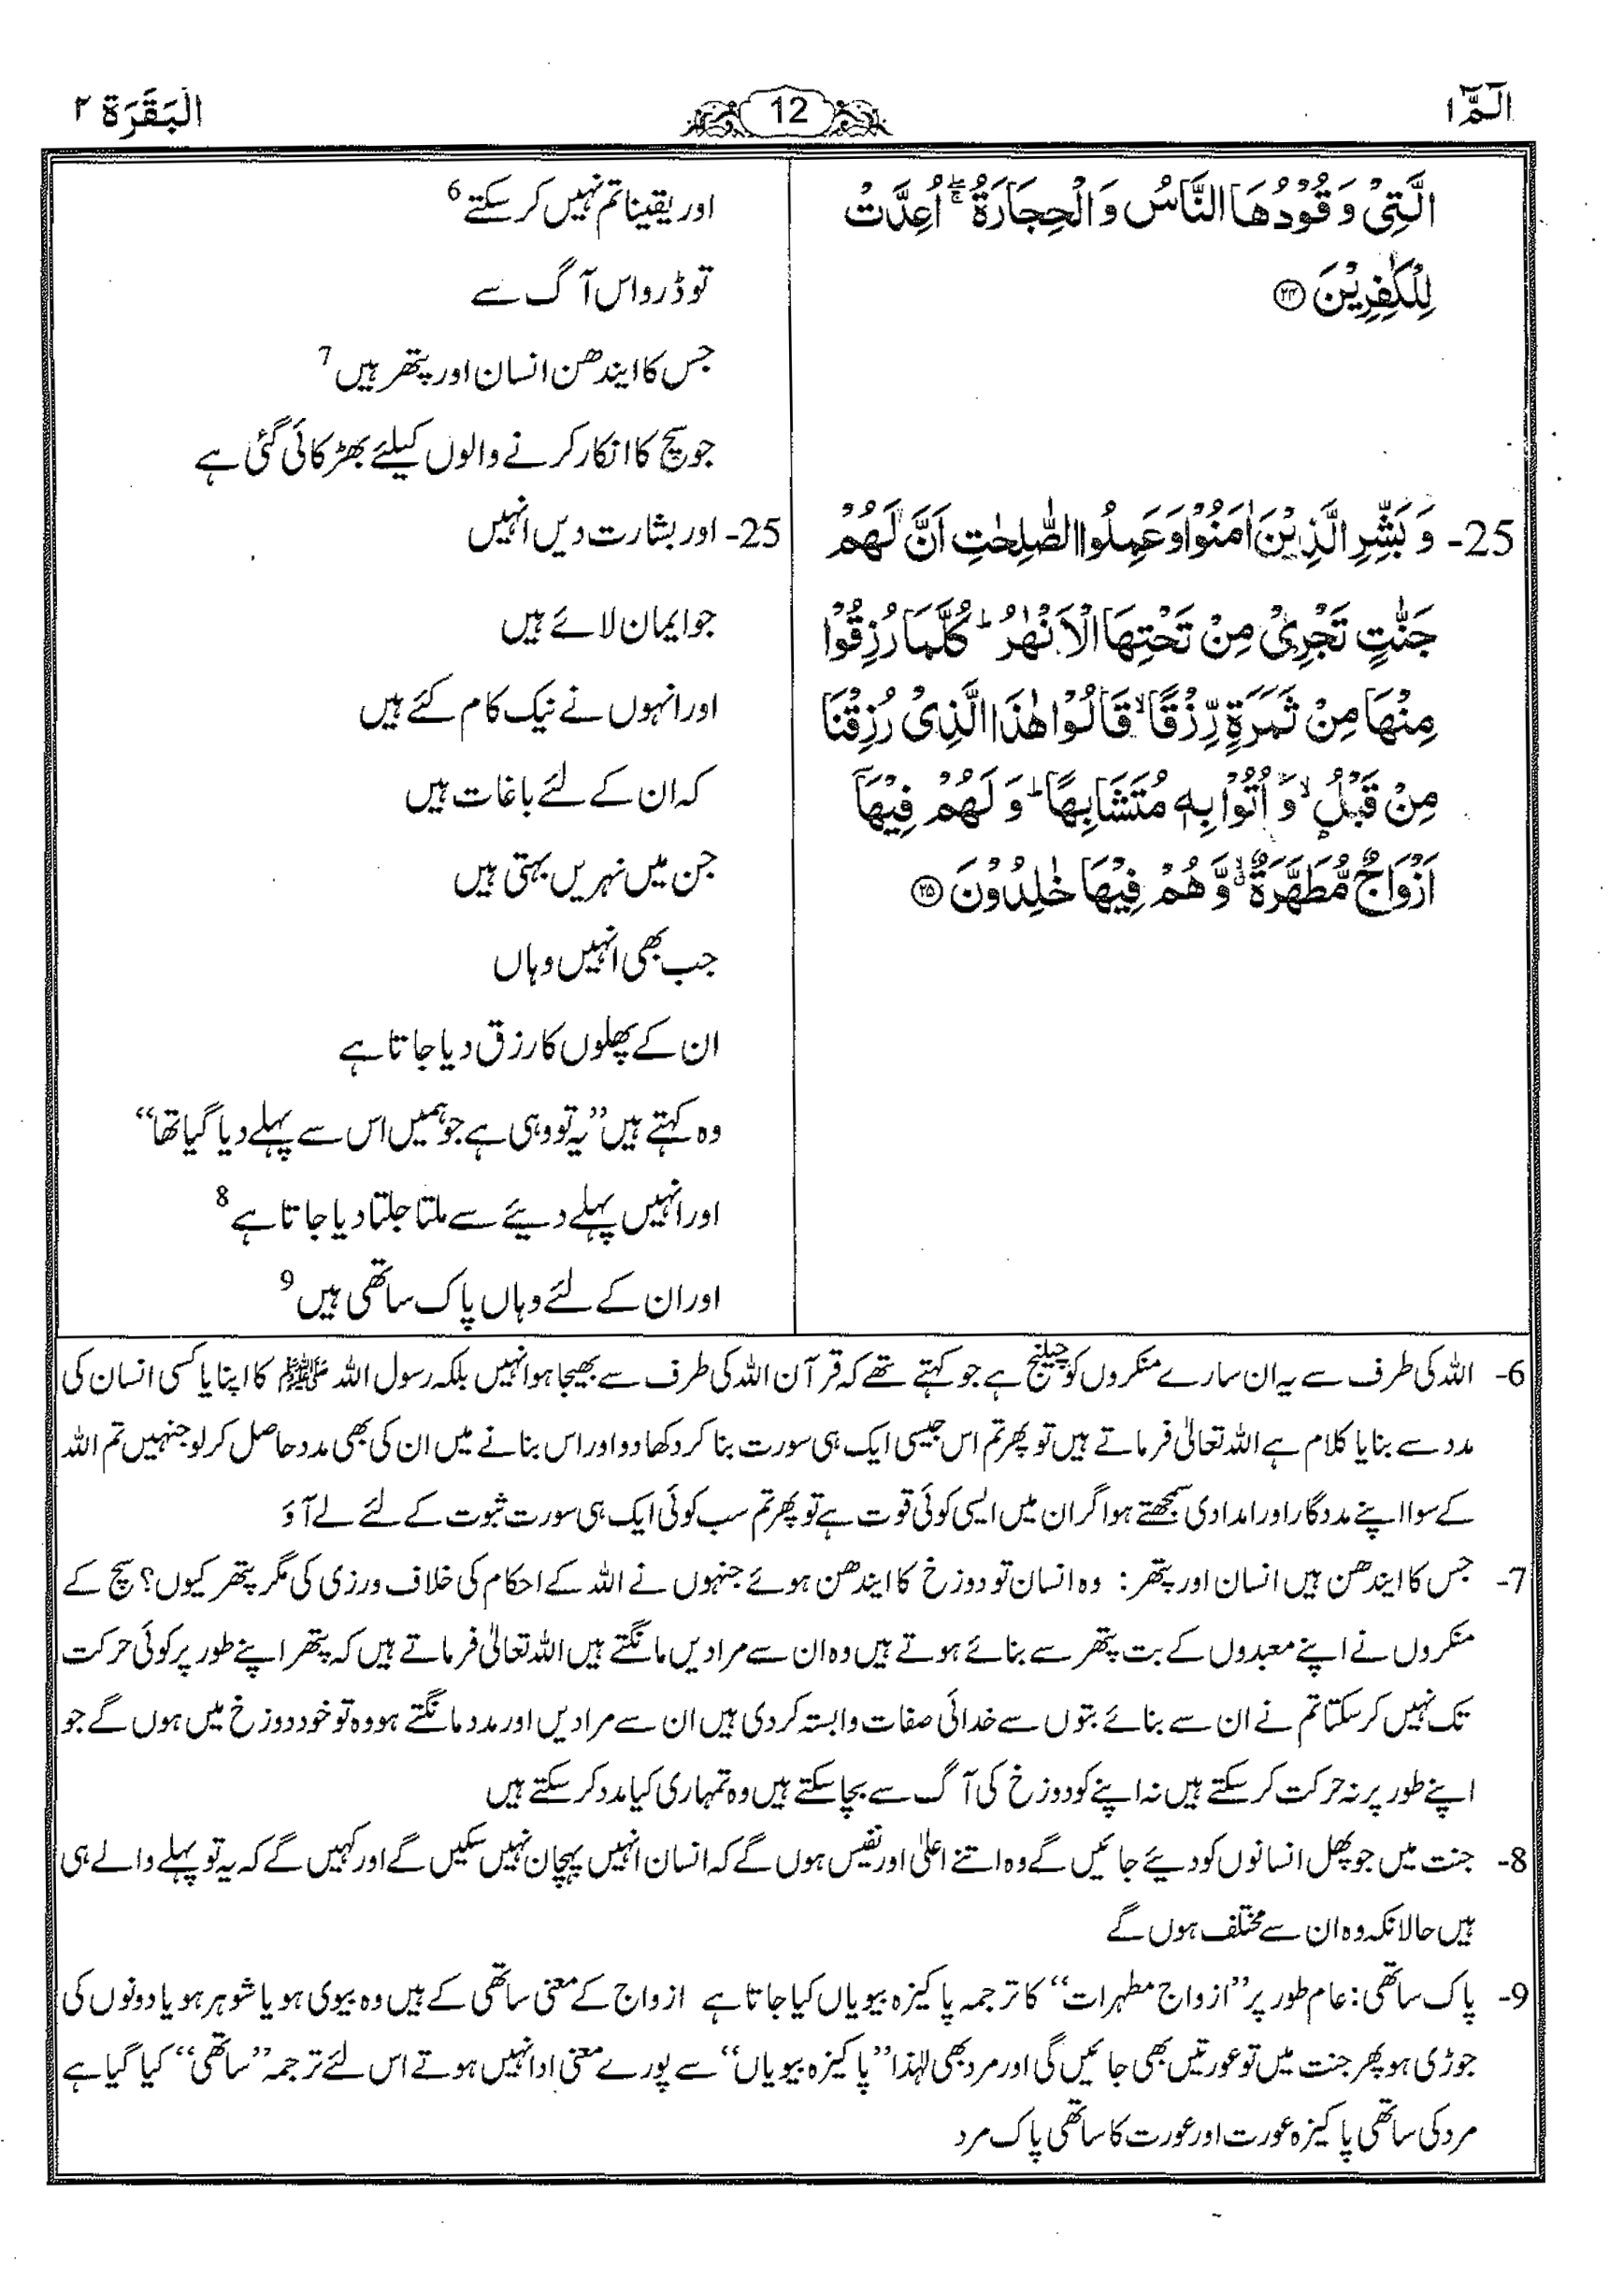 الٓمّٓ ١
12
الْبَقَرَة ٢
الَّتِیْ وَقُوْدُهَا النَّاسُ وَالْحِجَارَةُ ۖۚ اُعِدَّتْ
لِلْكٰفِرِیْنَ ﴿۲۴﴾
25- وَ بَشِّرِ الَّذِیْنَ اٰمَنُوْا وَعَمِلُوا الصّٰلِحٰتِ اَنَّ لَهُمْ
جَنّٰتٍ تَجْرِیْ مِنْ تَحْتِهَا الْاَنْهٰرُ ؕ كُلَّمَا رُزِقُوْا
مِنْهَا مِنْ ثَمَرَةٍ رِّزْقًا ۙ قَالُوْا هٰذَا الَّذِیْ رُزِقْنَا
مِنْ قَبْلُ ۙ وَ اُتُوْا بِهٖ مُتَشَابِهًا ؕ وَ لَهُمْ فِیْهَاۤ
اَزْوَاجٌ مُّطَهَّرَةٌ ۙۗ وَّ هُمْ فِیْهَا خٰلِدُوْنَ ﴿۲۵﴾
اور یقیناتم نہیں کر سکتے 6
تو ڈرو اس آگ سے
جس کا ایندھن انسان اور پتھر ہیں 7
جو سچ کا انکار کرنے والوں کیلئے بھڑکائی گئی ہے
25- اور بشارت دیں انہیں
جو ایمان لائے ہیں
اور انہوں نے نیک کام کئے ہیں
کہ ان کے لئے باغات ہیں
جن میں نہریں بہتی ہیں
جب بھی انہیں وہاں
ان کے پھلوں کا رزق دیا جاتا ہے
وہ کہتے ہیں ”یہ تو وہی ہے جو ہمیں اس سے پہلے دیا گیا تھا“
اور انہیں پہلے دیئے سے ملتا جلتا دیا جاتا ہے 8
اور ان کے لئے وہاں پاک ساتھی ہیں 9
6- اللہ کی طرف سے یہ ان سارے منکروں کو چیلنج ہے جو کہتے تھے کہ قرآن اللہ کی طرف سے بھیجا ہوا نہیں بلکہ رسول اللہ ﷺ کا اپنا یا کسی انسان کی
مدد سے بنایا کلام ہے اللہ تعالیٰ فرماتے ہیں تو پھر تم اس جیسی ایک ہی سورت بنا کر دکھا دو اور اس بنانے میں ان کی بھی مدد حاصل کر لو جنہیں تم اللہ
کے سوا اپنے مددگار اور امدادی سمجھتے ہو اگر ان میں ایسی کوئی قوت ہے تو پھر تم سب کوئی ایک ہی سورت ثبوت کے لئے لے آؤ
7- جس کا ایندھن ہیں انسان اور پتھر: وہ انسان تو دوزخ کا ایندھن ہوئے جنہوں نے اللہ کے احکام کی خلاف ورزی کی مگر پتھر کیوں؟ سچ کے
منکروں نے اپنے معبدوں کے بت پتھر سے بنائے ہوتے ہیں وہ ان سے مرادیں مانگتے ہیں اللہ تعالیٰ فرماتے ہیں کہ پتھر اپنے طور پر کوئی حرکت
تک نہیں کر سکتا تم نے ان سے بنائے بتوں سے خدائی صفات وابستہ کر دی ہیں ان سے مرادیں اور مدد مانگتے ہو وہ تو خود دوزخ میں ہوں گے جو
اپنے طور پر نہ حرکت کر سکتے ہیں نہ اپنے کو دوزخ کی آگ سے بچا سکتے ہیں وہ تمہاری کیا مدد کر سکتے ہیں
8- جنت میں جو پھل انسانوں کو دیئے جائیں گے وہ اتنے اعلیٰ اور نفیس ہوں گے کہ انسان انہیں پہچان نہیں سکیں گے اور کہیں گے کہ یہ تو پہلے والے ہی
ہیں حالانکہ وہ ان سے مختلف ہوں گے
9- پاک ساتھی: عام طور پر ”ازواج مطہرات“ کا ترجمہ پاکیزہ بیویاں کیا جاتا ہے ازواج کے معنی ساتھی کے ہیں وہ بیوی ہو یا شوہر ہو یا دونوں کی
جوڑی ہو پھر جنت میں تو عورتیں بھی جائیں گی اور مرد بھی لہٰذا ”پاکیزہ بیویاں“ سے پورے معنی ادا نہیں ہوتے اس لئے ترجمہ ”ساتھی“ کیا گیا ہے
مرد کی ساتھی پاکیزہ عورت اور عورت کا ساتھی پاک مرد